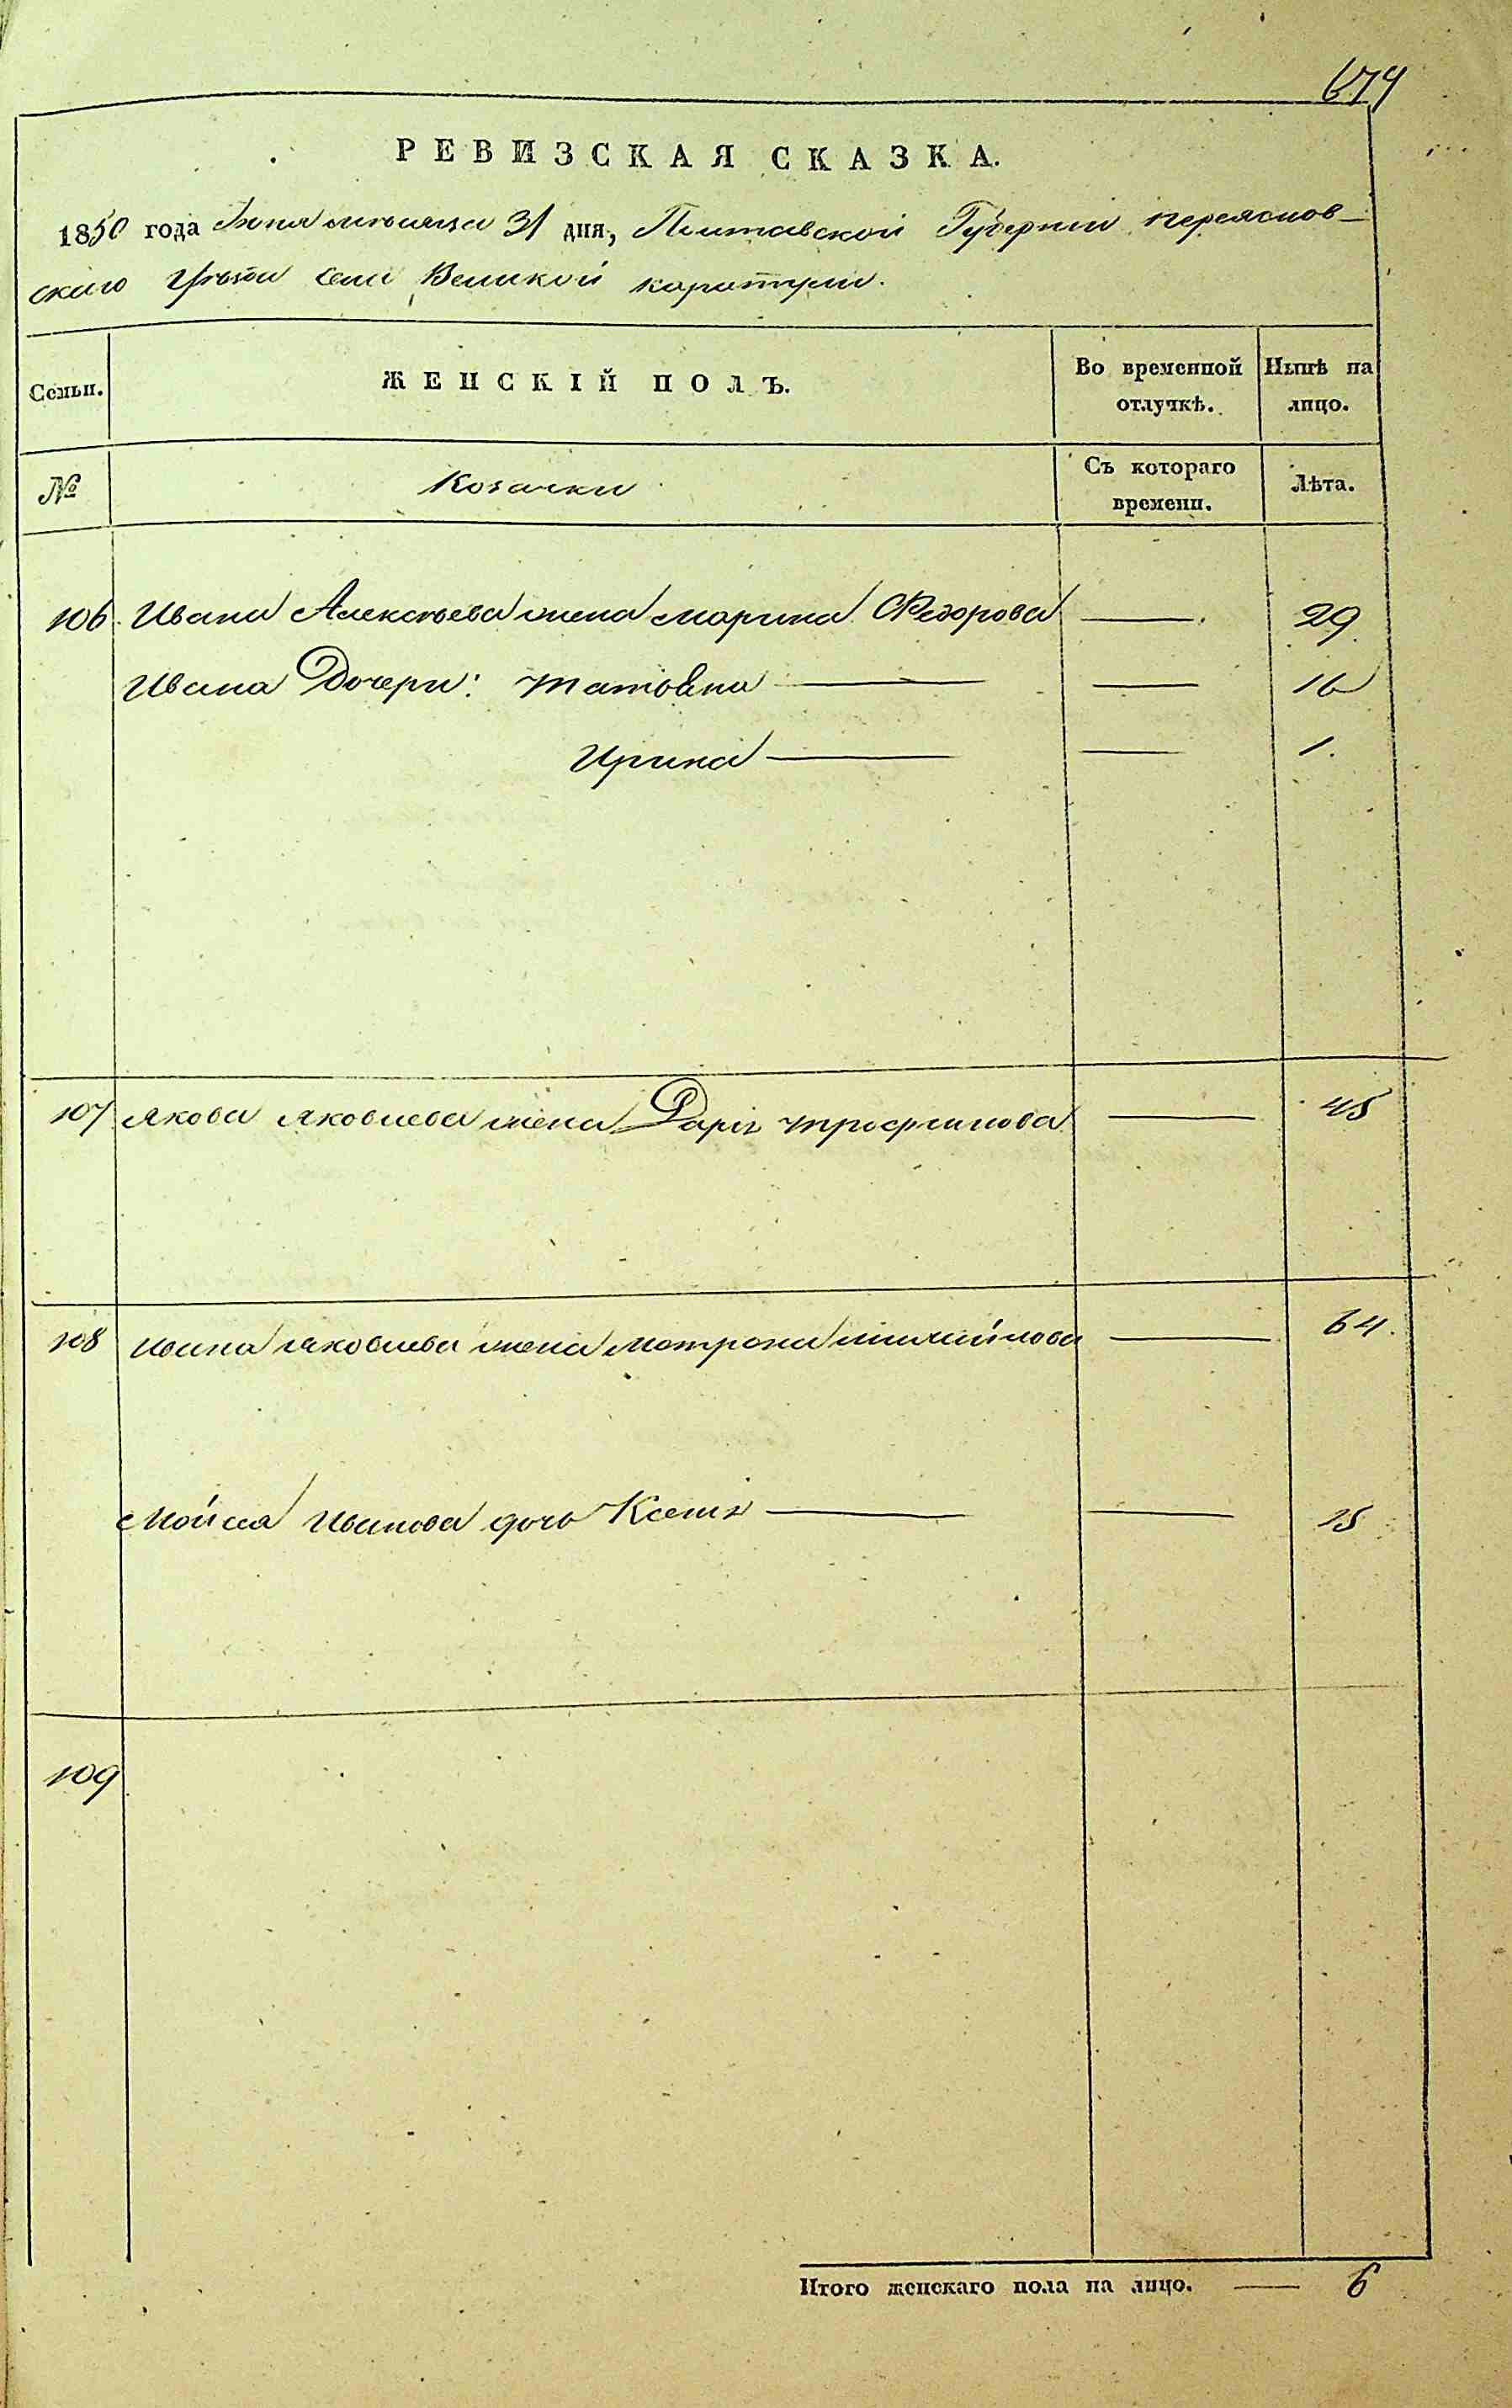 674
РЕВИЗСКАЯ СКАЗКА.
1850 года Июня месяца 31 дня, Полтавской Губернии Переяслов-
скаго Уѣзда Села Великой каратули.
Семьи. ЖЕНСКІЙ ПОЛЪ. Во временной отлучкѣ. Нынѣ на лицо.
№ Козачки Съ котораго времени. Лѣта.
106. Ивана Алексѣева жена Марина Федорова — 29
Ивана Дочери: Татьяна — — 16
Ирина — — 1.
107 Якова Яковлева жена Дарія Трофимова — 45
108 Ивана Яковлева жена Мотрона Михайлова — 64.
Мойсея Иванова дочь Ксенія — — 15
109
Итого женскаго пола на лицо. — 6